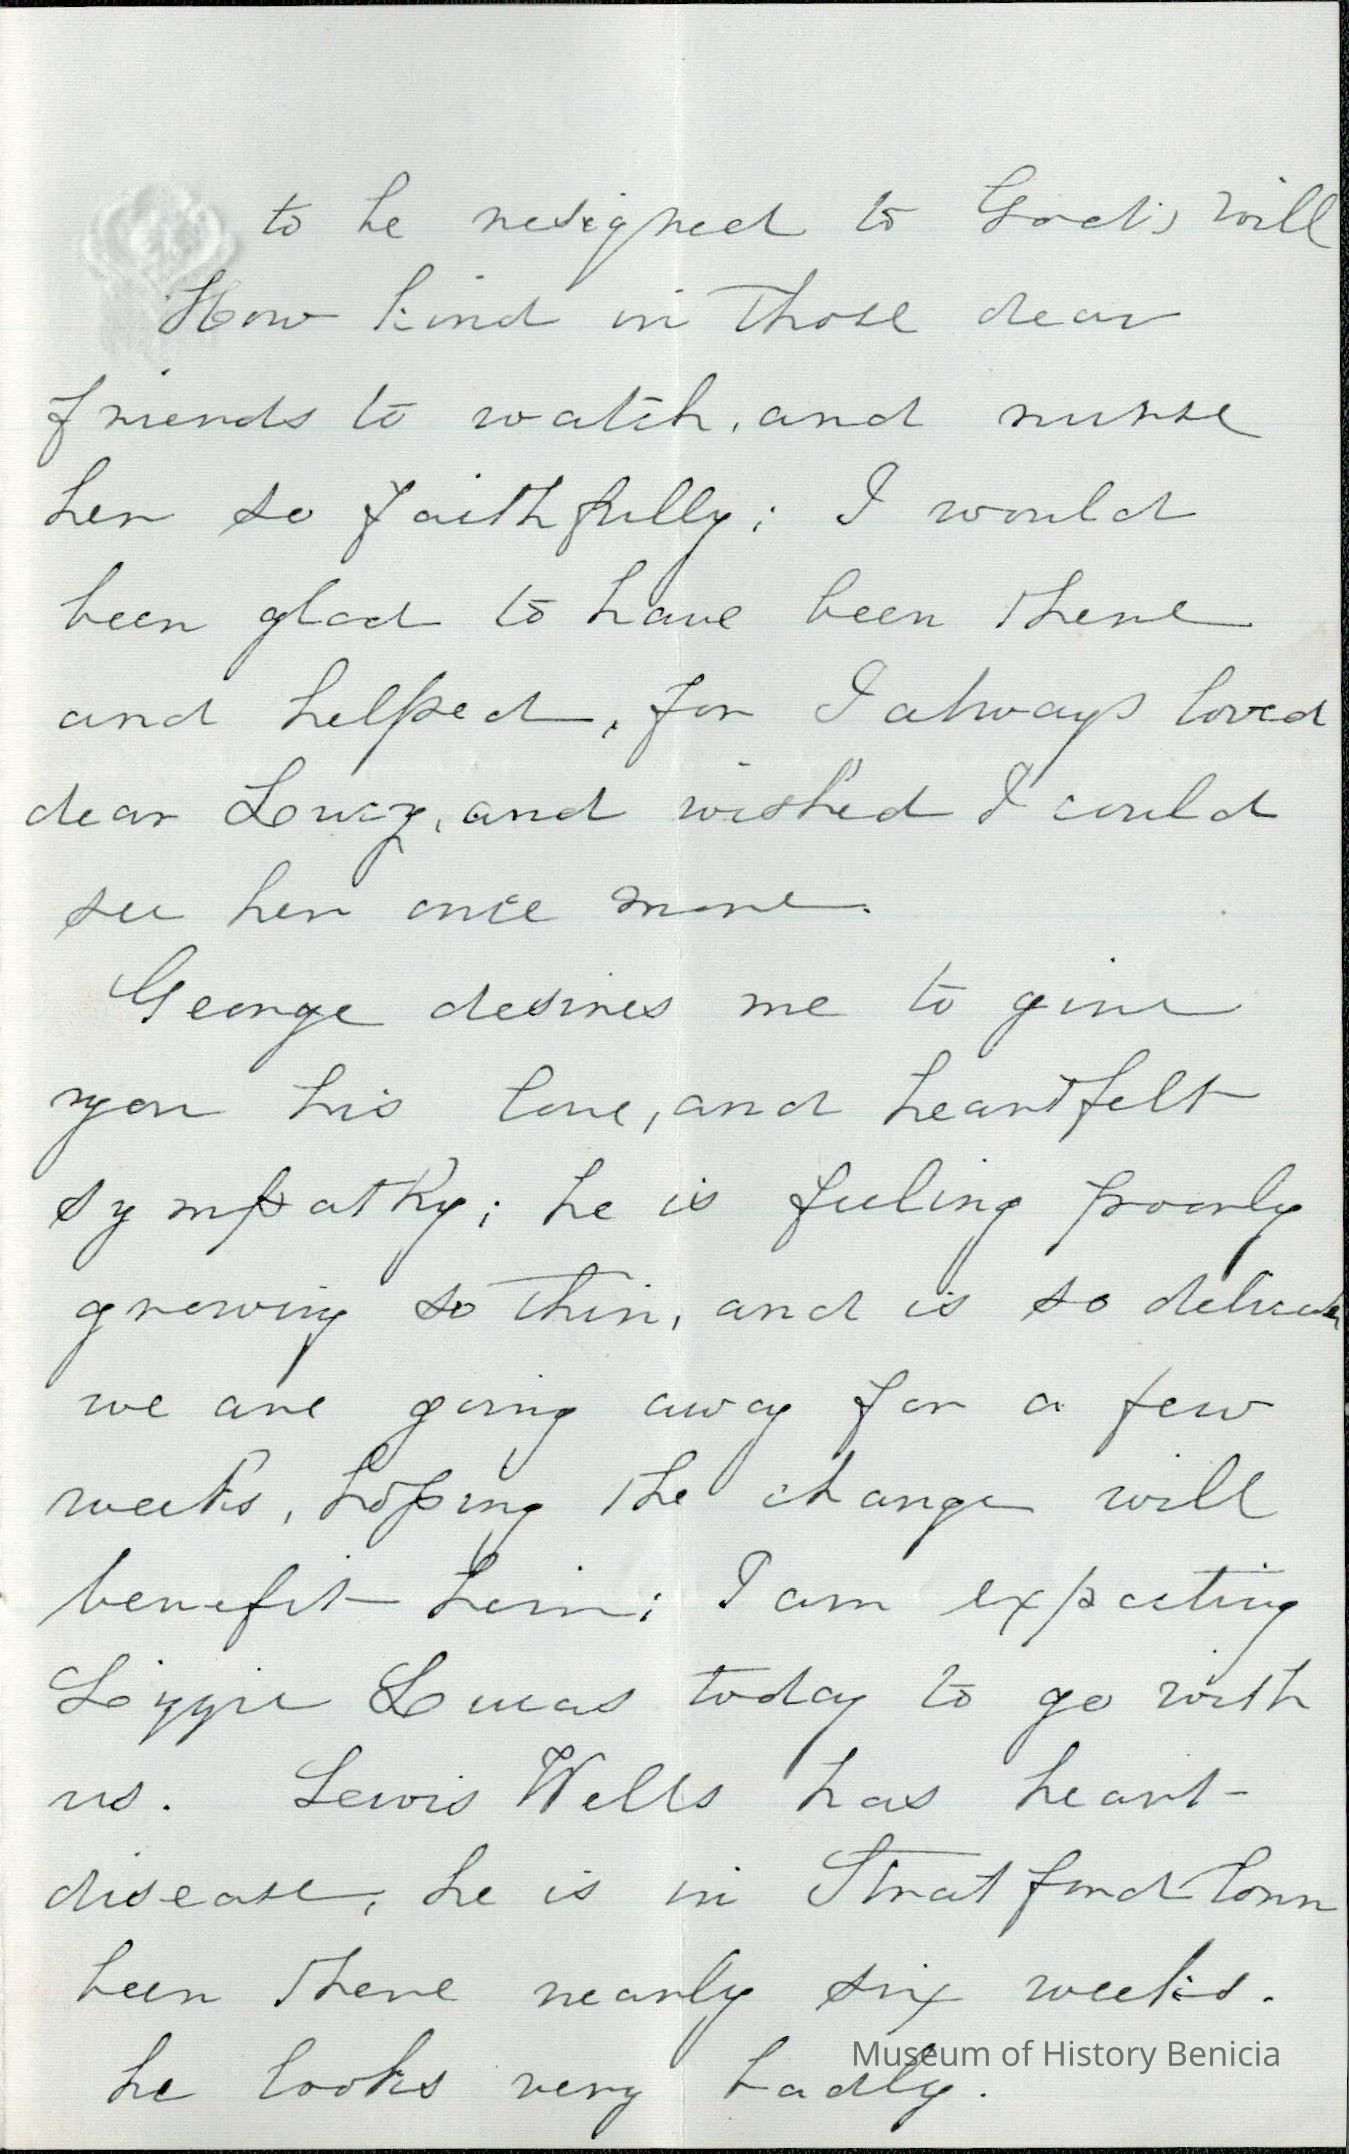 to be resigned to God's will
How kind in those dear
friends to watch, and nurse
her so faithfully; I would
been glad to have been there
and helped, for I always loved
dear Loucy, and wished I could
see her once more.
George desires me to give
you his love, and heartfelt
sympathy; he is feeling poorly
growing so thin, and is so delicate
we are going away for a few
weeks, hoping the change will
benefit him; I am expecting
Lizzie Lucas today to go with
us. Lewis Wells has heart-
disease, he is in Stratford Conn
been there nearly six weeks.
he looks very badly.
Museum of History Benicia